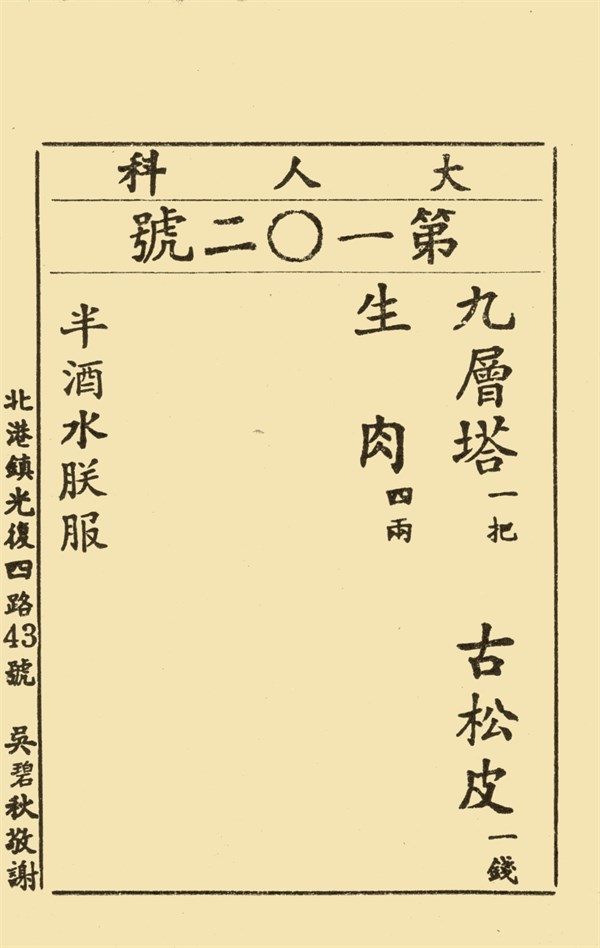 大人科
第一〇二號
九層塔一把 古松皮一錢
生肉四兩
半酒水朕服
北港鎮光復四路43號 吳碧秋敬謝